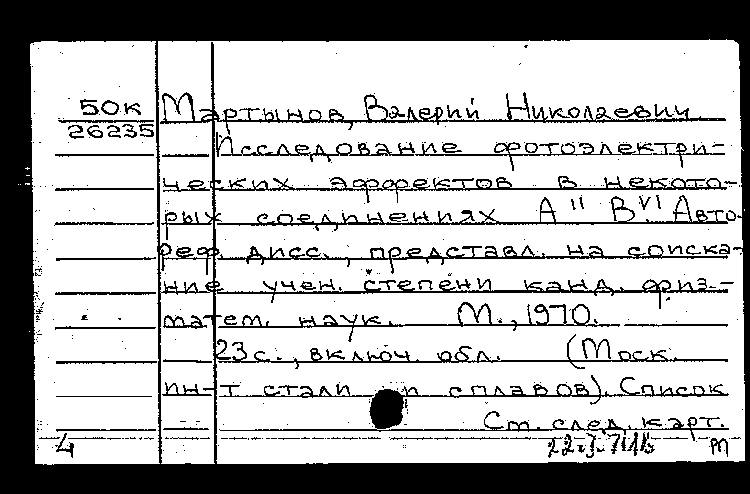 50к Мартынов, Валерий Николаевич
26235
Исследование фотоэлектри-
ческих эффектов в некото-
рых соединениях А II В VI. Авто-
реф. дисс., представл. на соиска-
ние учен. степени канд. физ.-
матем. наук. М., 1970.
23с., включ. обл. (Моск.
ин-т стали и сплавов). Список
См. след. карт.
4